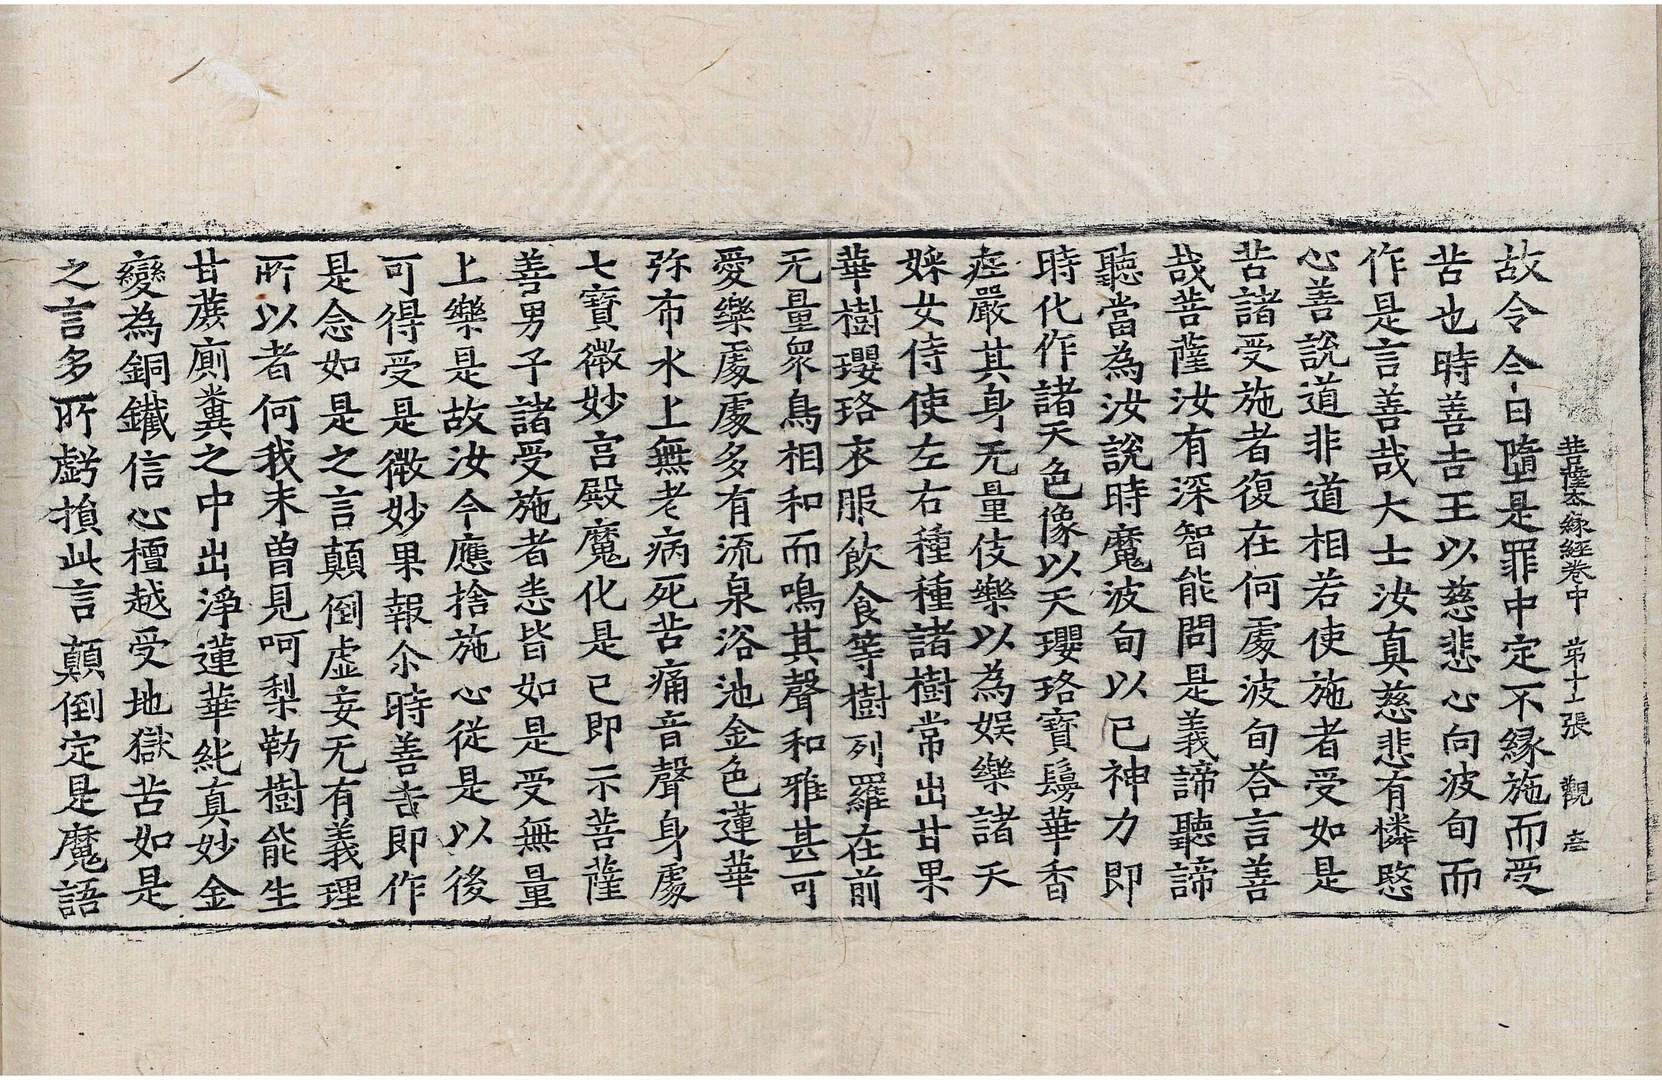 菩薩本緣經卷中 第十一張 觀 㐂
故令今日墮是罪中定不緣施而受
苦也時善吉王以慈悲心向波旬而
作是言善哉大士汝真慈悲有憐愍
心善說道非道相若使施者受如是
苦諸受施者復在何處波旬荅言善
哉菩薩汝有深智能問是義諦聽諦
聽當為汝說時魔波旬以已神力即
時化作諸天色像以天瓔珞寶鬘華香
莊嚴其身无量伎樂以為娛樂諸天
婇女侍使左右種種諸樹常出甘果
華樹瓔珞衣服飲食等樹列羅在前
无量眾鳥相和而鳴其聲和雅甚可
愛樂處處多有流泉浴池金色蓮華
弥布水上無老病死苦痛音聲身處
七寶微妙宫殿魔化是已即示菩薩
善男子諸受施者恚皆如是受無量
上樂是故汝今應捨施心從是以後
可得受是微妙果報尒時善吉即作
是念如是之言顛倒虛妄无有義理
所以者何我未曾見呵梨勒樹能生
甘蔗廁糞之中出淨蓮華純真妙金
變為銅鐵信心檀越受地獄苦如是
之言多所虧損此言顛倒定是魔語